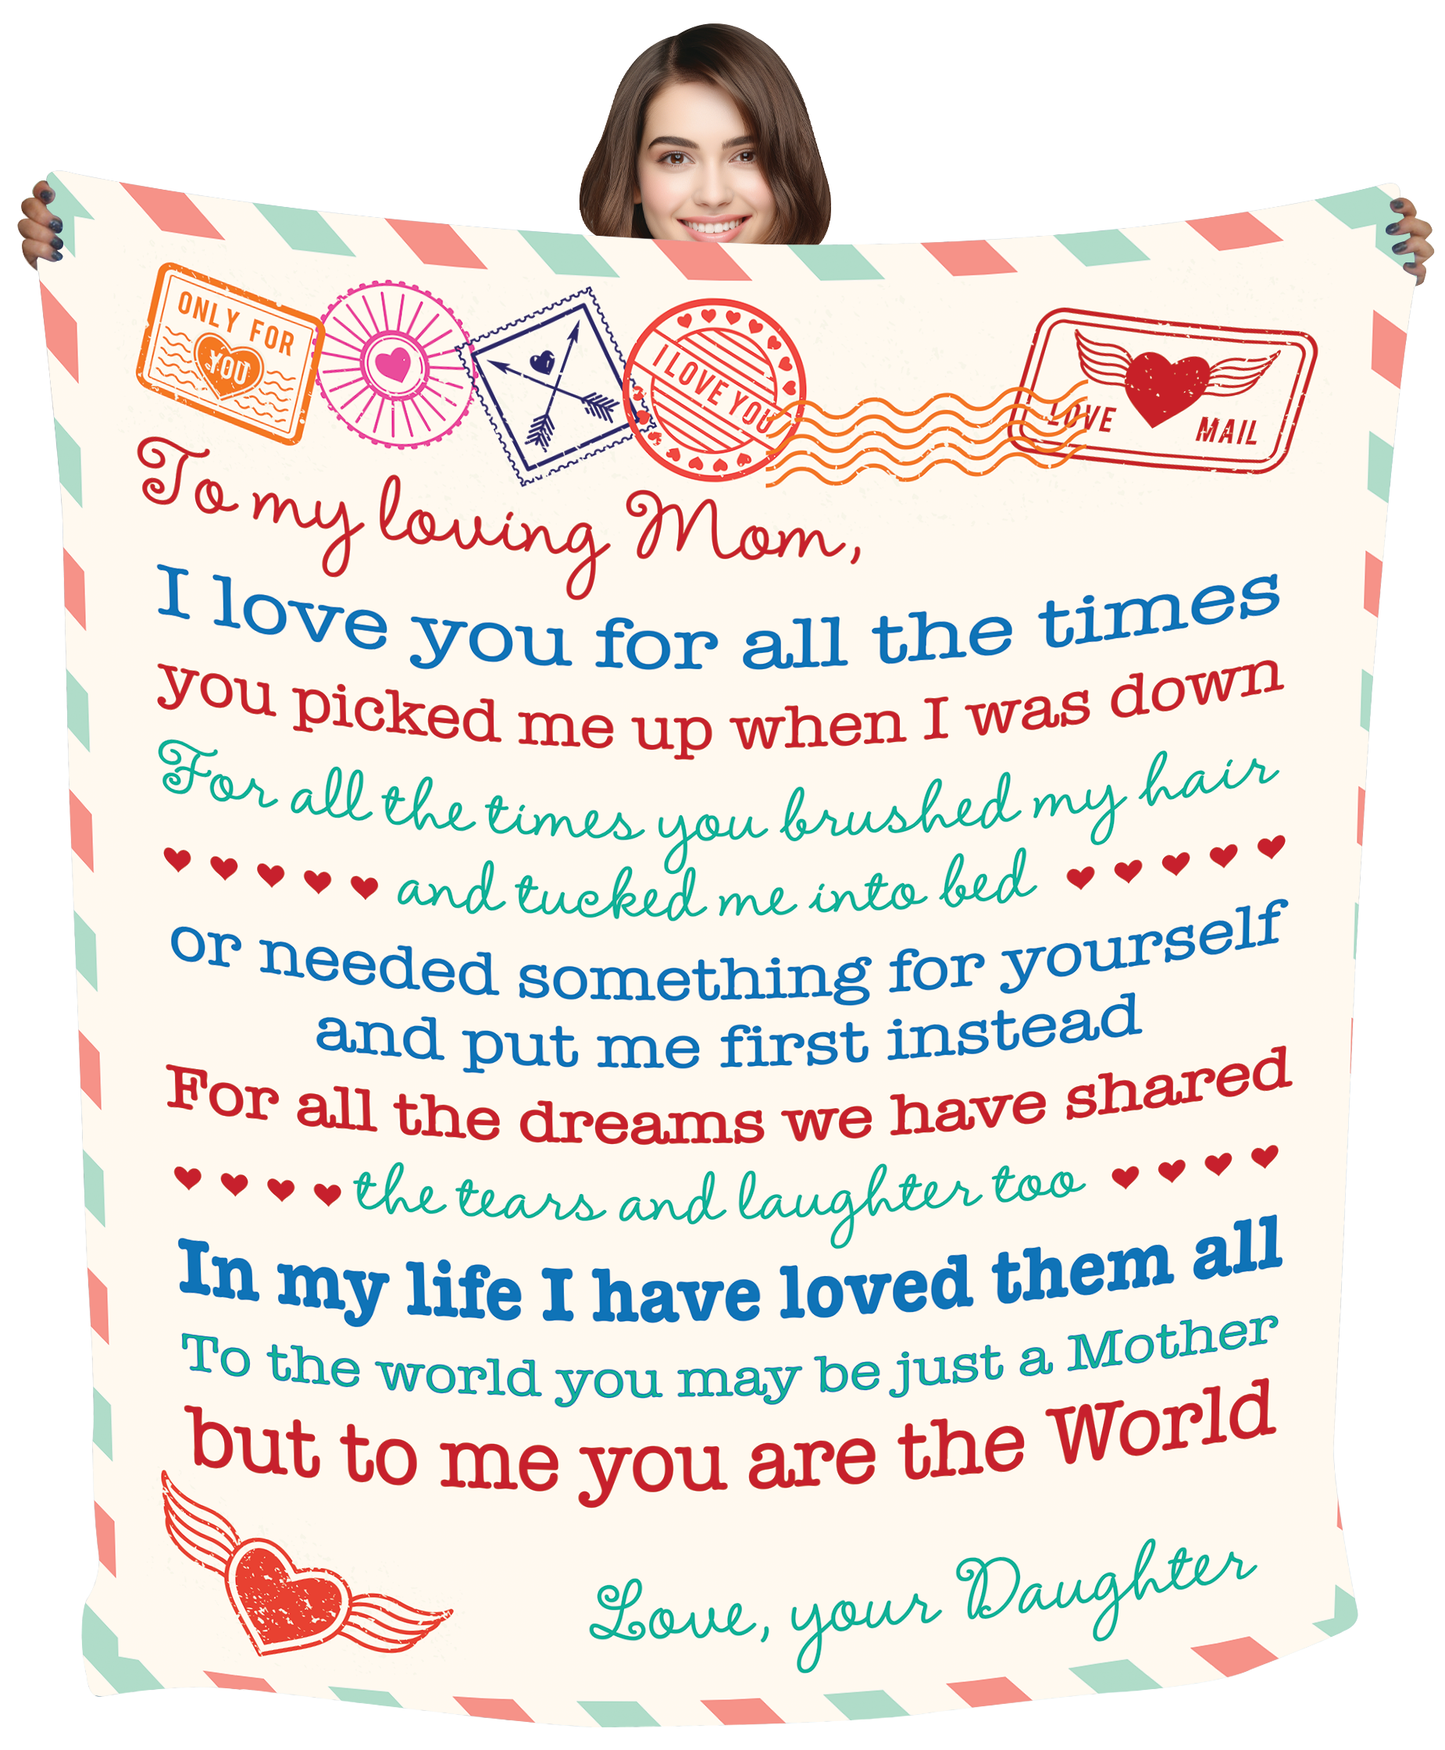 ONLY FOR
YOU
I LOVE YOU
LOVE MAIL
To my loving Mom,
I love you for all the times
you picked me up when I was down
For all the times you brushed my hair
and tucked me into bed
or needed something for yourself
and put me first instead
For all the dreams we have shared
the tears and laughter too
In my life I have loved them all
To the world you may be just a Mother
but to me you are the World
Love, your Daughter